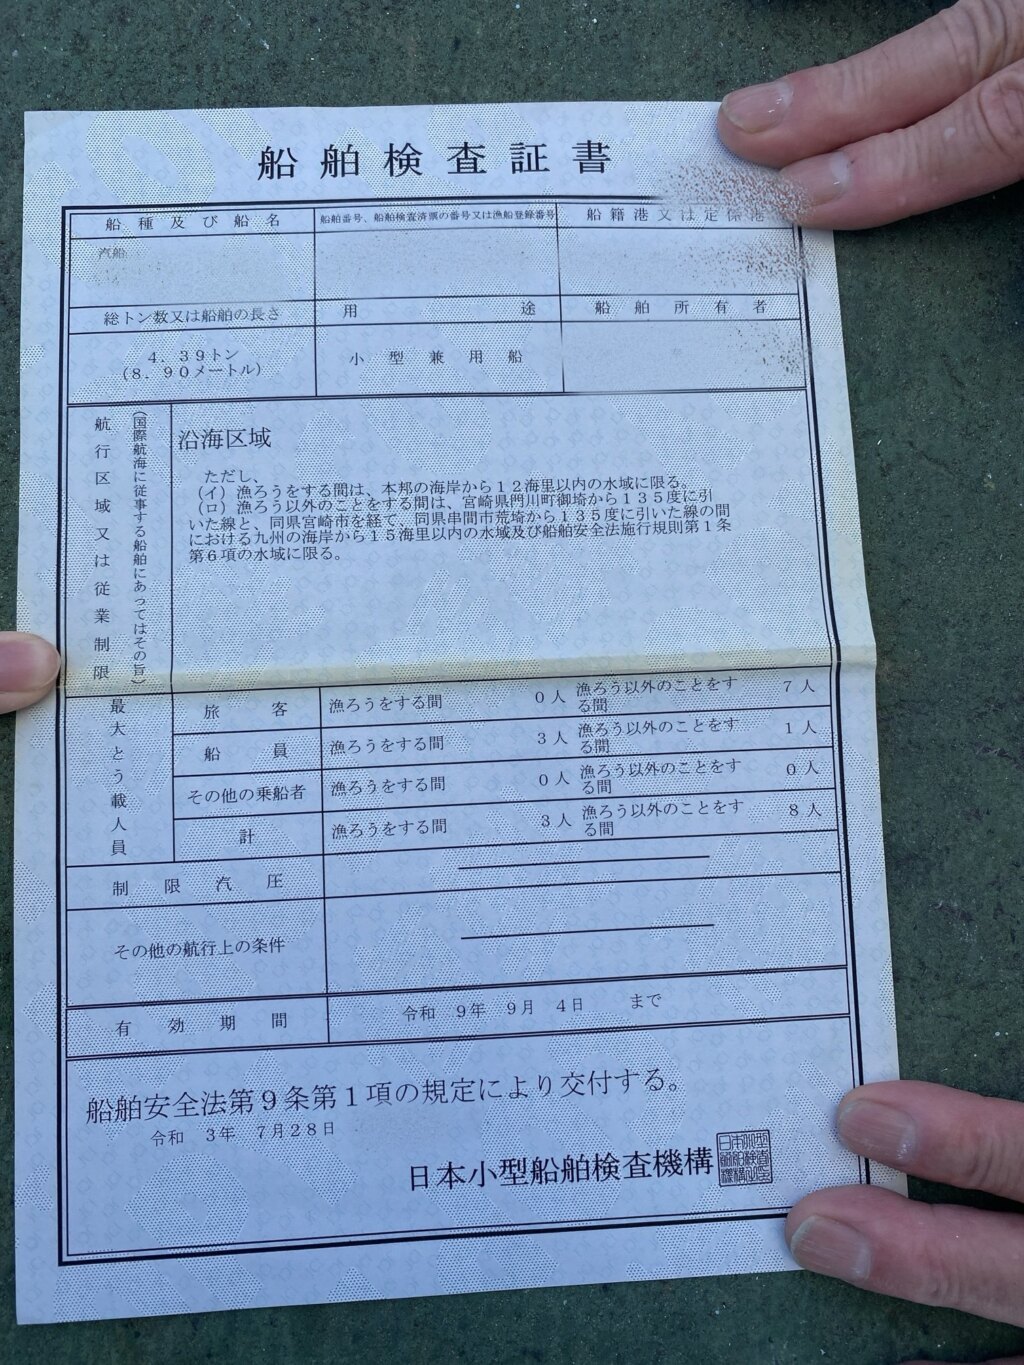 船舶検査証書
船種及び船名
船舶番号、船舶検査済票の番号又は漁船登録番号
船籍港又は定係港
汽船
総トン数又は船舶の長さ
用途
船舶所有者
4.39トン
(8.90メートル)
小型兼用船
航行区域又は従業制限
(国際航海に従事する船舶にあってはその旨)
沿海区域
ただし、
(イ)漁ろうをする間は、本邦の海岸から12海里以内の水域に限る。
(ロ)漁ろう以外のことをする間は、宮崎県門川町御埼から135度に引
いた線と、同県宮崎市を経て、同県串間市荒埼から135度に引いた線の間
における九州の海岸から15海里以内の水域及び船舶安全法施行規則第1条
第6項の水域に限る。
最大とう載人員
旅客 漁ろうをする間 0人 漁ろう以外のことをす
る間 7人
船員 漁ろうをする間 3人 漁ろう以外のことをす
る間 1人
その他の乗船者 漁ろうをする間 0人 漁ろう以外のことをす
る間 0人
計 漁ろうをする間 3人 漁ろう以外のことをす
る間 8人
制限汽圧
その他の航行上の条件
有効期間 令和 9年 9月 4日 まで
船舶安全法第9条第1項の規定により交付する。
令和 3年 7月28日
日本小型船舶検査機構